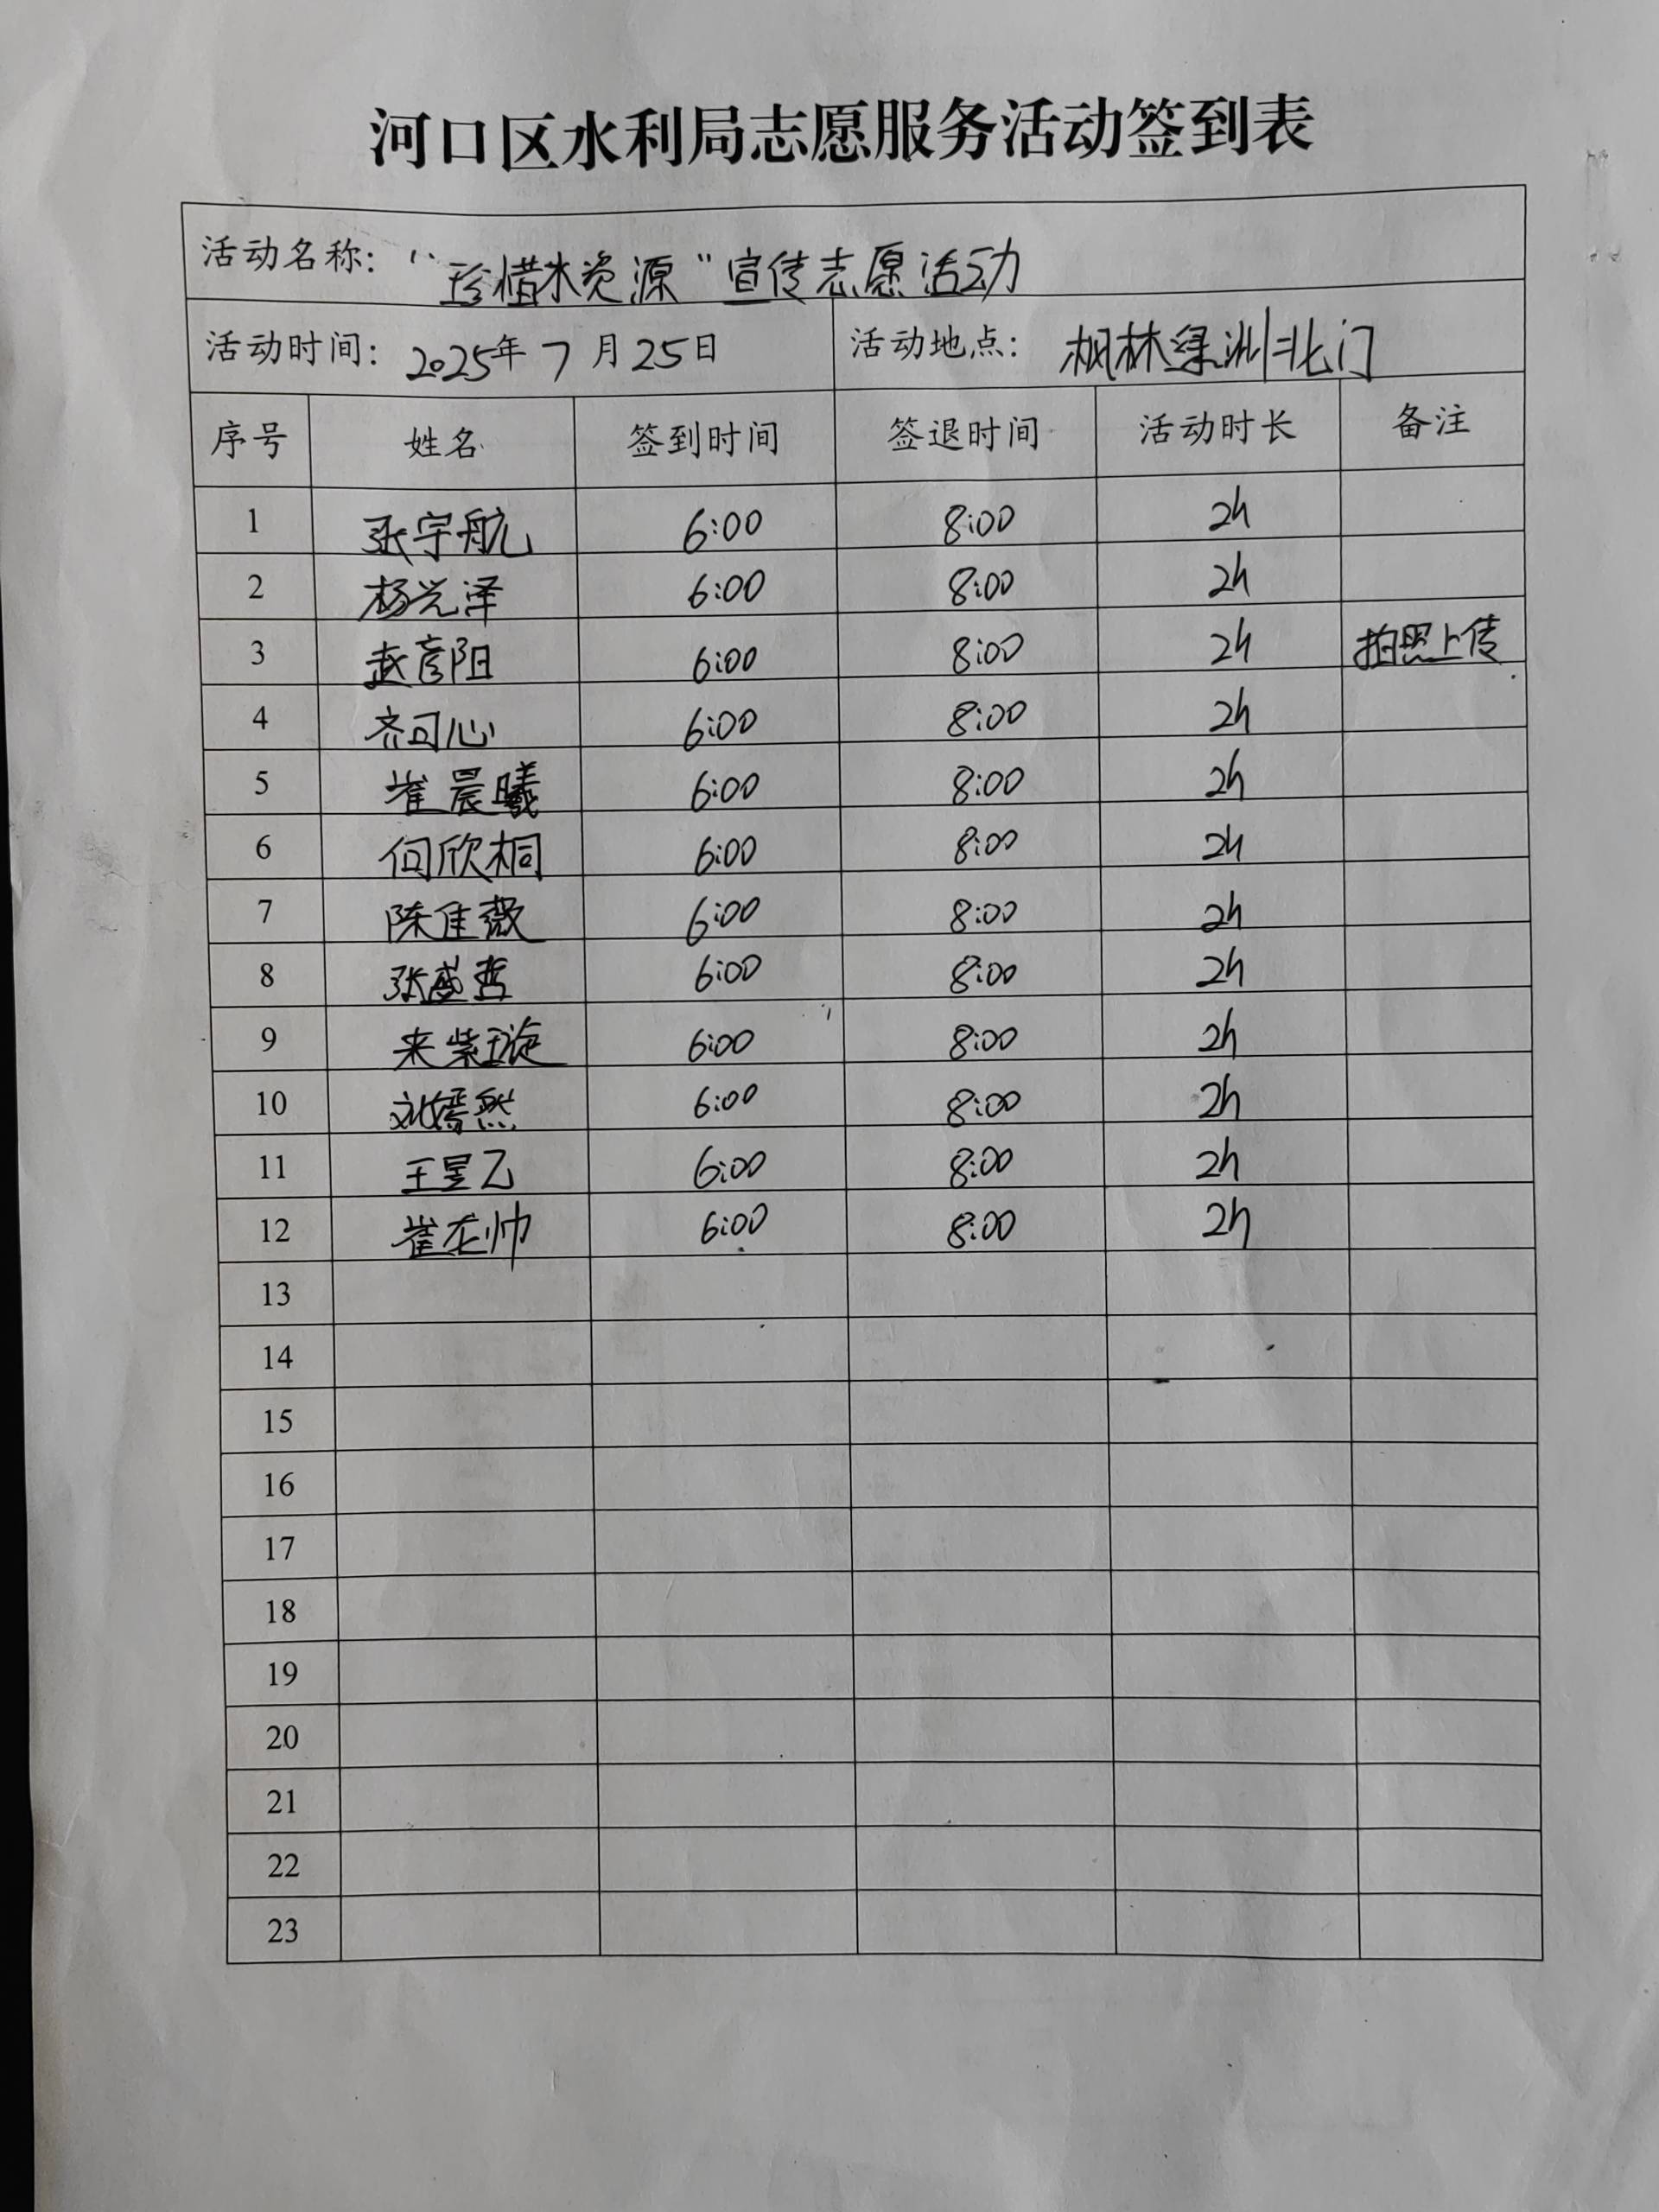 河口区水利局志愿服务活动签到表
活动名称：“珍惜水资源”宣传志愿活动
活动时间：2025年7月25日 活动地点：枫林绿洲北门
序号 姓名 签到时间 签退时间 活动时长 备注
1 张宇航 6:00 8:00 2h
2 杨光泽 6:00 8:00 2h
3 赵彦阳 6:00 8:00 2h 拍照上传
4 齐可心 6:00 8:00 2h
5 崔晨曦 6:00 8:00 2h
6 何欣桐 6:00 8:00 2h
7 陈佳薇 6:00 8:00 2h
8 张盛哲 6:00 8:00 2h
9 来紫璇 6:00 8:00 2h
10 刘嫣然 6:00 8:00 2h
11 王昱乙 6:00 8:00 2h
12 崔龙帅 6:00 8:00 2h
13
14
15
16
17
18
19
20
21
22
23